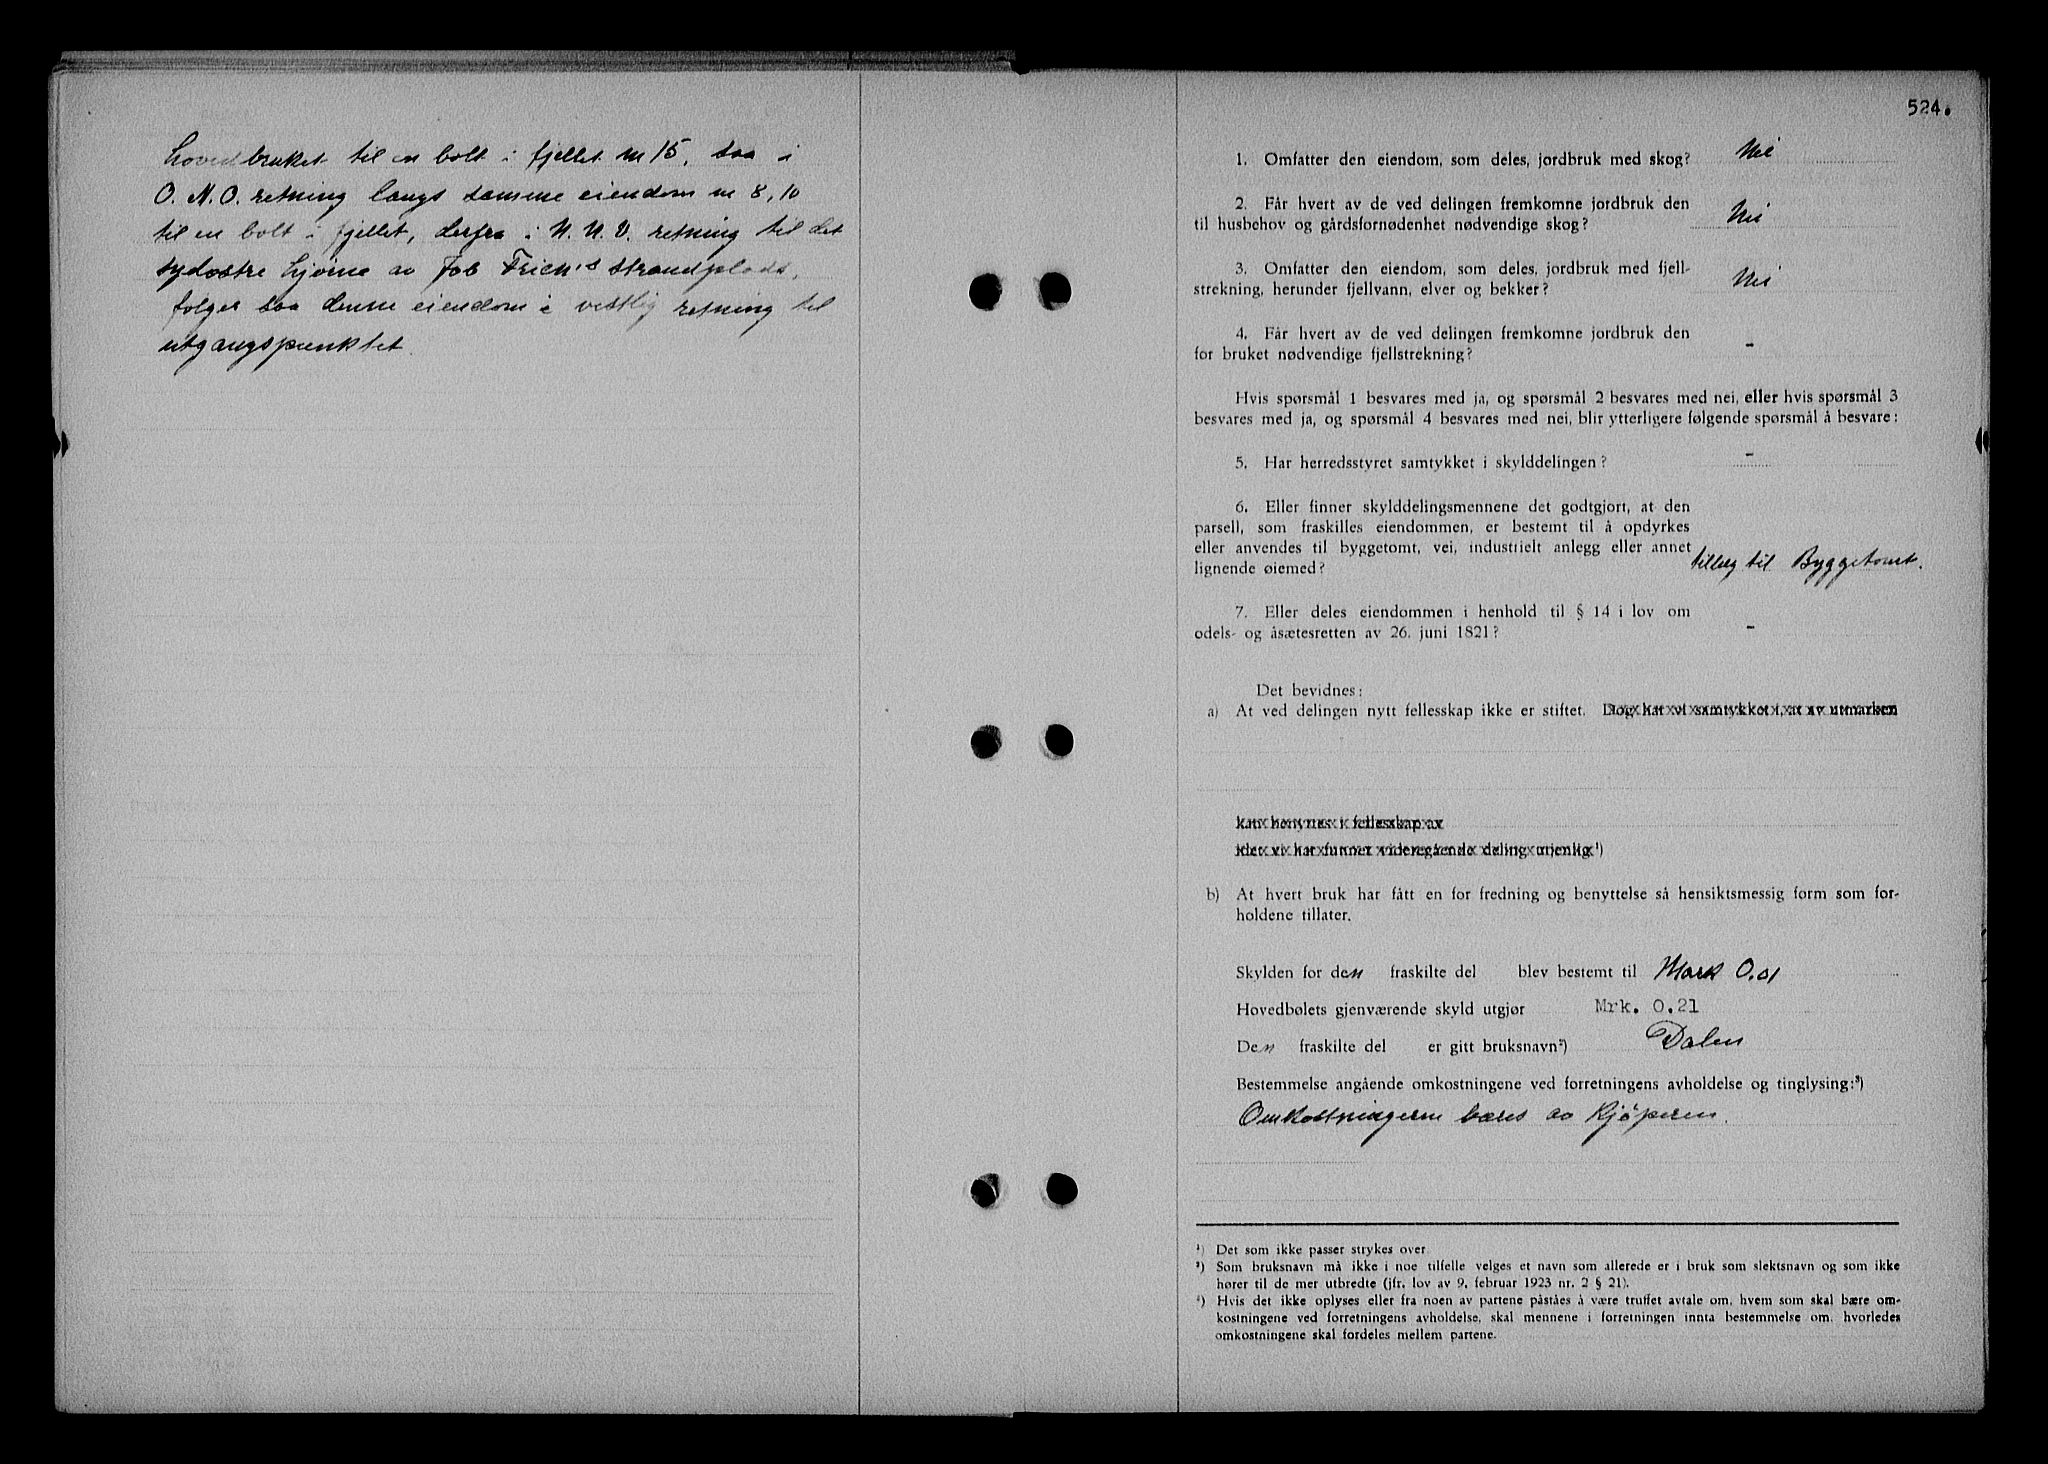 hovedbruket til en bolt i fjellet m 15, saa i
O. N. O. retning langs samme eiendom m 8,10
til en bolt i fjellet, derfra i N. N. V. retning til det
sydostre hjørne av Job Frich's strandplads,
følger saa denne eiendom i vestlig retning til
utgangspunktet.
524.
1. Omfatter den eiendom, som deles, jordbruk med skog? Nei
2. Får hvert av de ved delingen fremkomne jordbruk den
til husbehov og gårdsfornødenhet nødvendige skog? Nei
3. Omfatter den eiendom, som deles, jordbruk med fjell-
strekning, herunder fjellvann, elver og bekker? Nei
4. Får hvert av de ved delingen fremkomne jordbruk den
for bruket nødvendige fjellstrekning? -
Hvis spørsmål 1 besvares med ja, og spørsmål 2 besvares med nei, eller hvis spørsmål 3
besvares med ja, og spørsmål 4 besvares med nei, blir ytterligere følgende spørsmål å besvare:
5. Har herredsstyret samtykket i skylddelingen? -
6. Eller finner skylddelingsmennene det godtgjort, at den
parsell, som fraskilles eiendommen, er bestemt til å opdyrkes
eller anvendes til byggetomt, vei, industrielt anlegg eller annet
lignende øiemed? tillæg til Byggetomt.
7. Eller deles eiendommen i henhold til § 14 i lov om
odels- og åsætesretten av 26. juni 1821? -
Det bevidnes:
a) At ved delingen nytt fellesskap ikke er stiftet. Dog har vi samtykket i, at av utmarken
kan benyttes i fellesskap av
idet vi har funnet videregående deling utjenlig ¹)
b) At hvert bruk har fått en for fredning og benyttelse så hensiktsmessig form som for-
holdene tillater.
Skylden for den fraskilte del blev bestemt til Mark 0.01
Hovedbølets gjenværende skyld utgjør Mrk. 0.21
Den fraskilte del er gitt bruksnavn²) Dalen
Bestemmelse angående omkostningene ved forretningens avholdelse og tinglysing:³)
Omkostningerne bæres av Kjøperen.
¹) Det som ikke passer strykes over
²) Som bruksnavn må ikke i noe tilfelle velges et navn som allerede er i bruk som slektsnavn og som ikke
hører til de mer utbredte (jfr. lov av 9. februar 1923 nr. 2 § 21).
³) Hvis det ikke oplyses eller fra noen av partene påståes å være truffet avtale om, hvem som skal bære om-
kostningene ved forretningens avholdelse, skal mennene i forretningen innta bestemmelse om, hvorledes
omkostningene skal fordeles mellem partene.